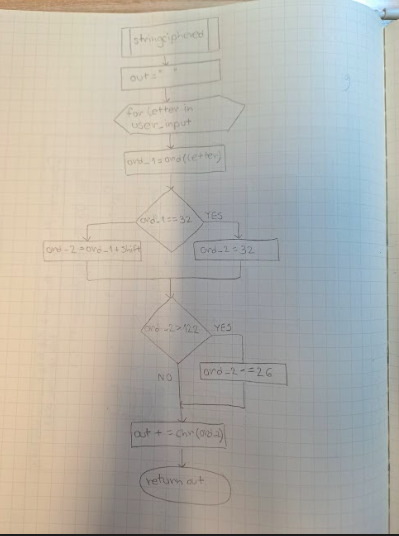 stringciphered
out=" "
for letter in
user_input
ord_1=ord(letter)
ord_1==32
YES
ord_2=ord_1+shift
ord_2=32
ord_2>122
YES
ord_2-=26
NO
out+=chr(ord_2)
return out